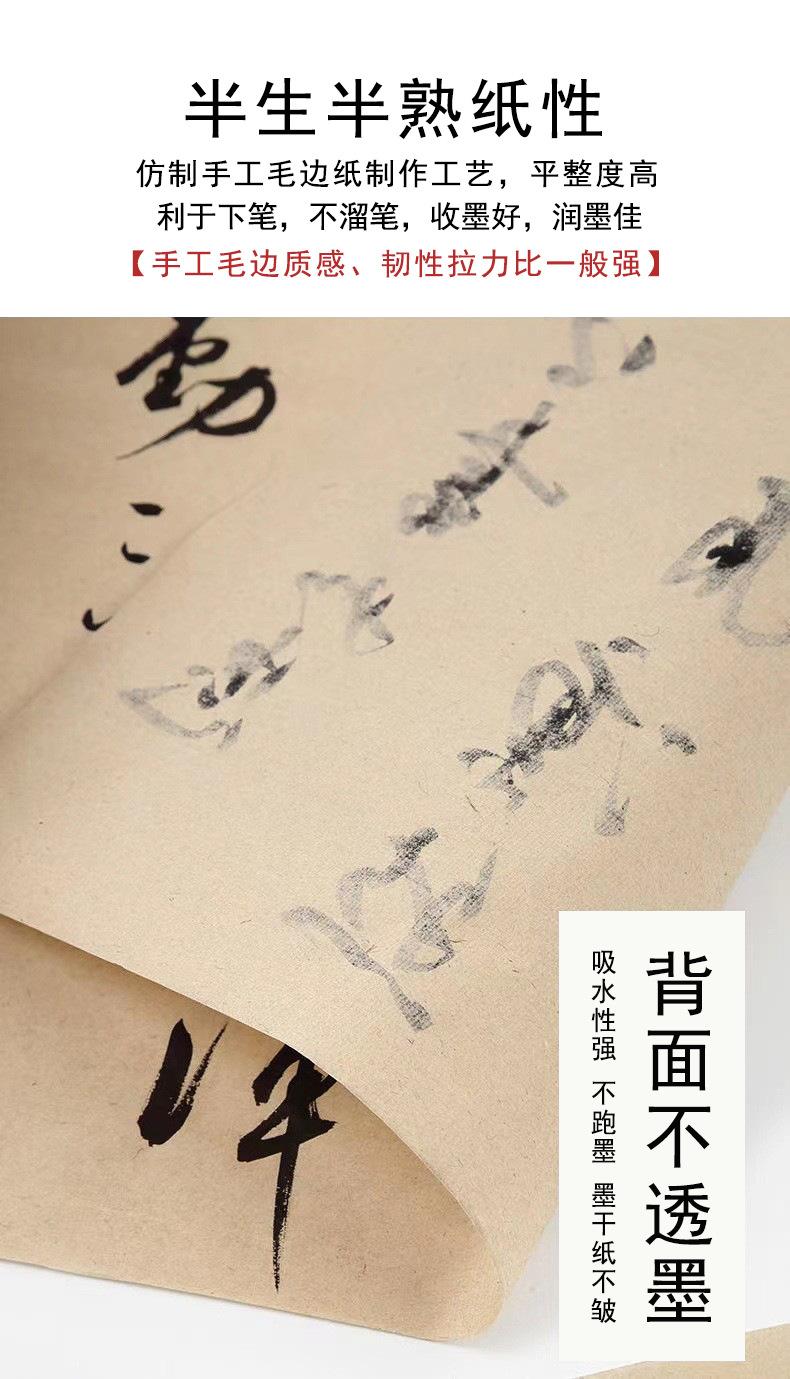 半生半熟纸性
仿制手工毛边纸制作工艺，平整度高
利于下笔，不溜笔，收墨好，润墨佳
【手工毛边质感、韧性拉力比一般强】
背面不透墨
吸水性强 不跑墨 墨干纸不皱